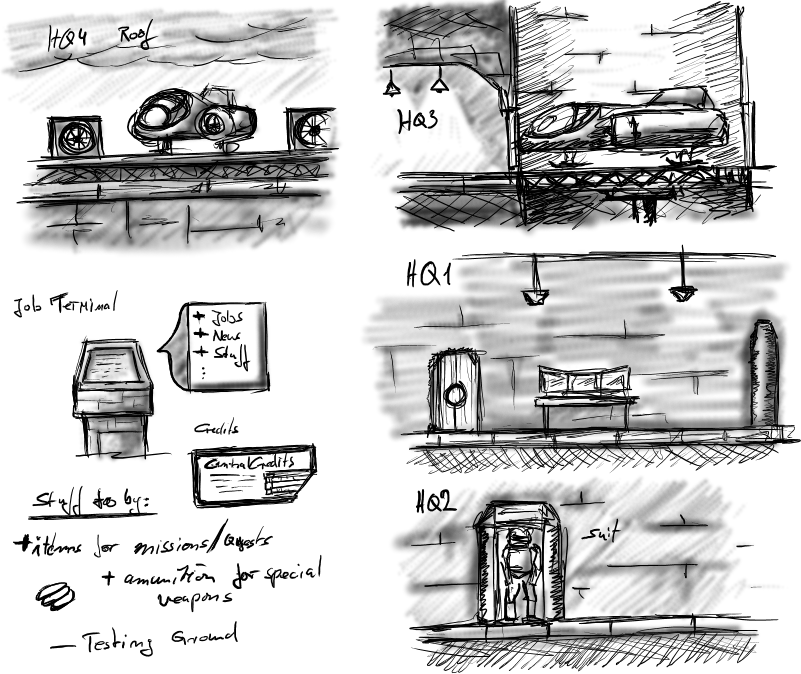 HQ4 Roof
HQ3
HQ1
Job Terminal
+ Jobs
+ News
+ Stuff
:
Credits
CentralCredits
HQ2
suit
Stuff to by:
+ items for missions/Quests
+ amunition for special
weapons
— Testing Ground